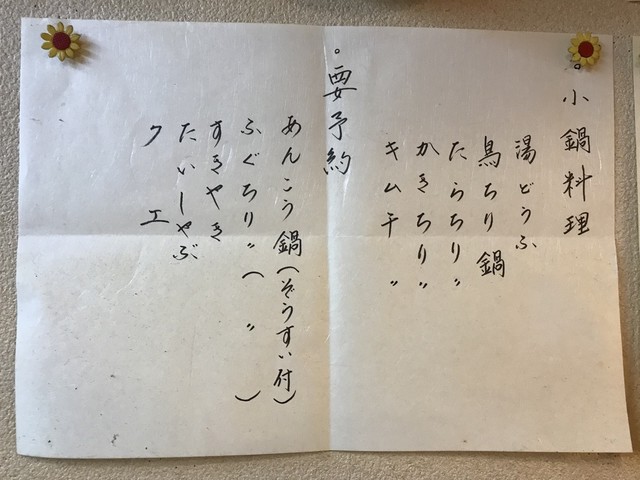 。小鍋料理
湯どうふ
鳥ちり鍋
たらちり〃
かきちり〃
キムチ〃
。要予約
あんこう鍋(ぞうすい付)
ふぐちり〃(〃)
すきやき
たいしゃぶ
クエ